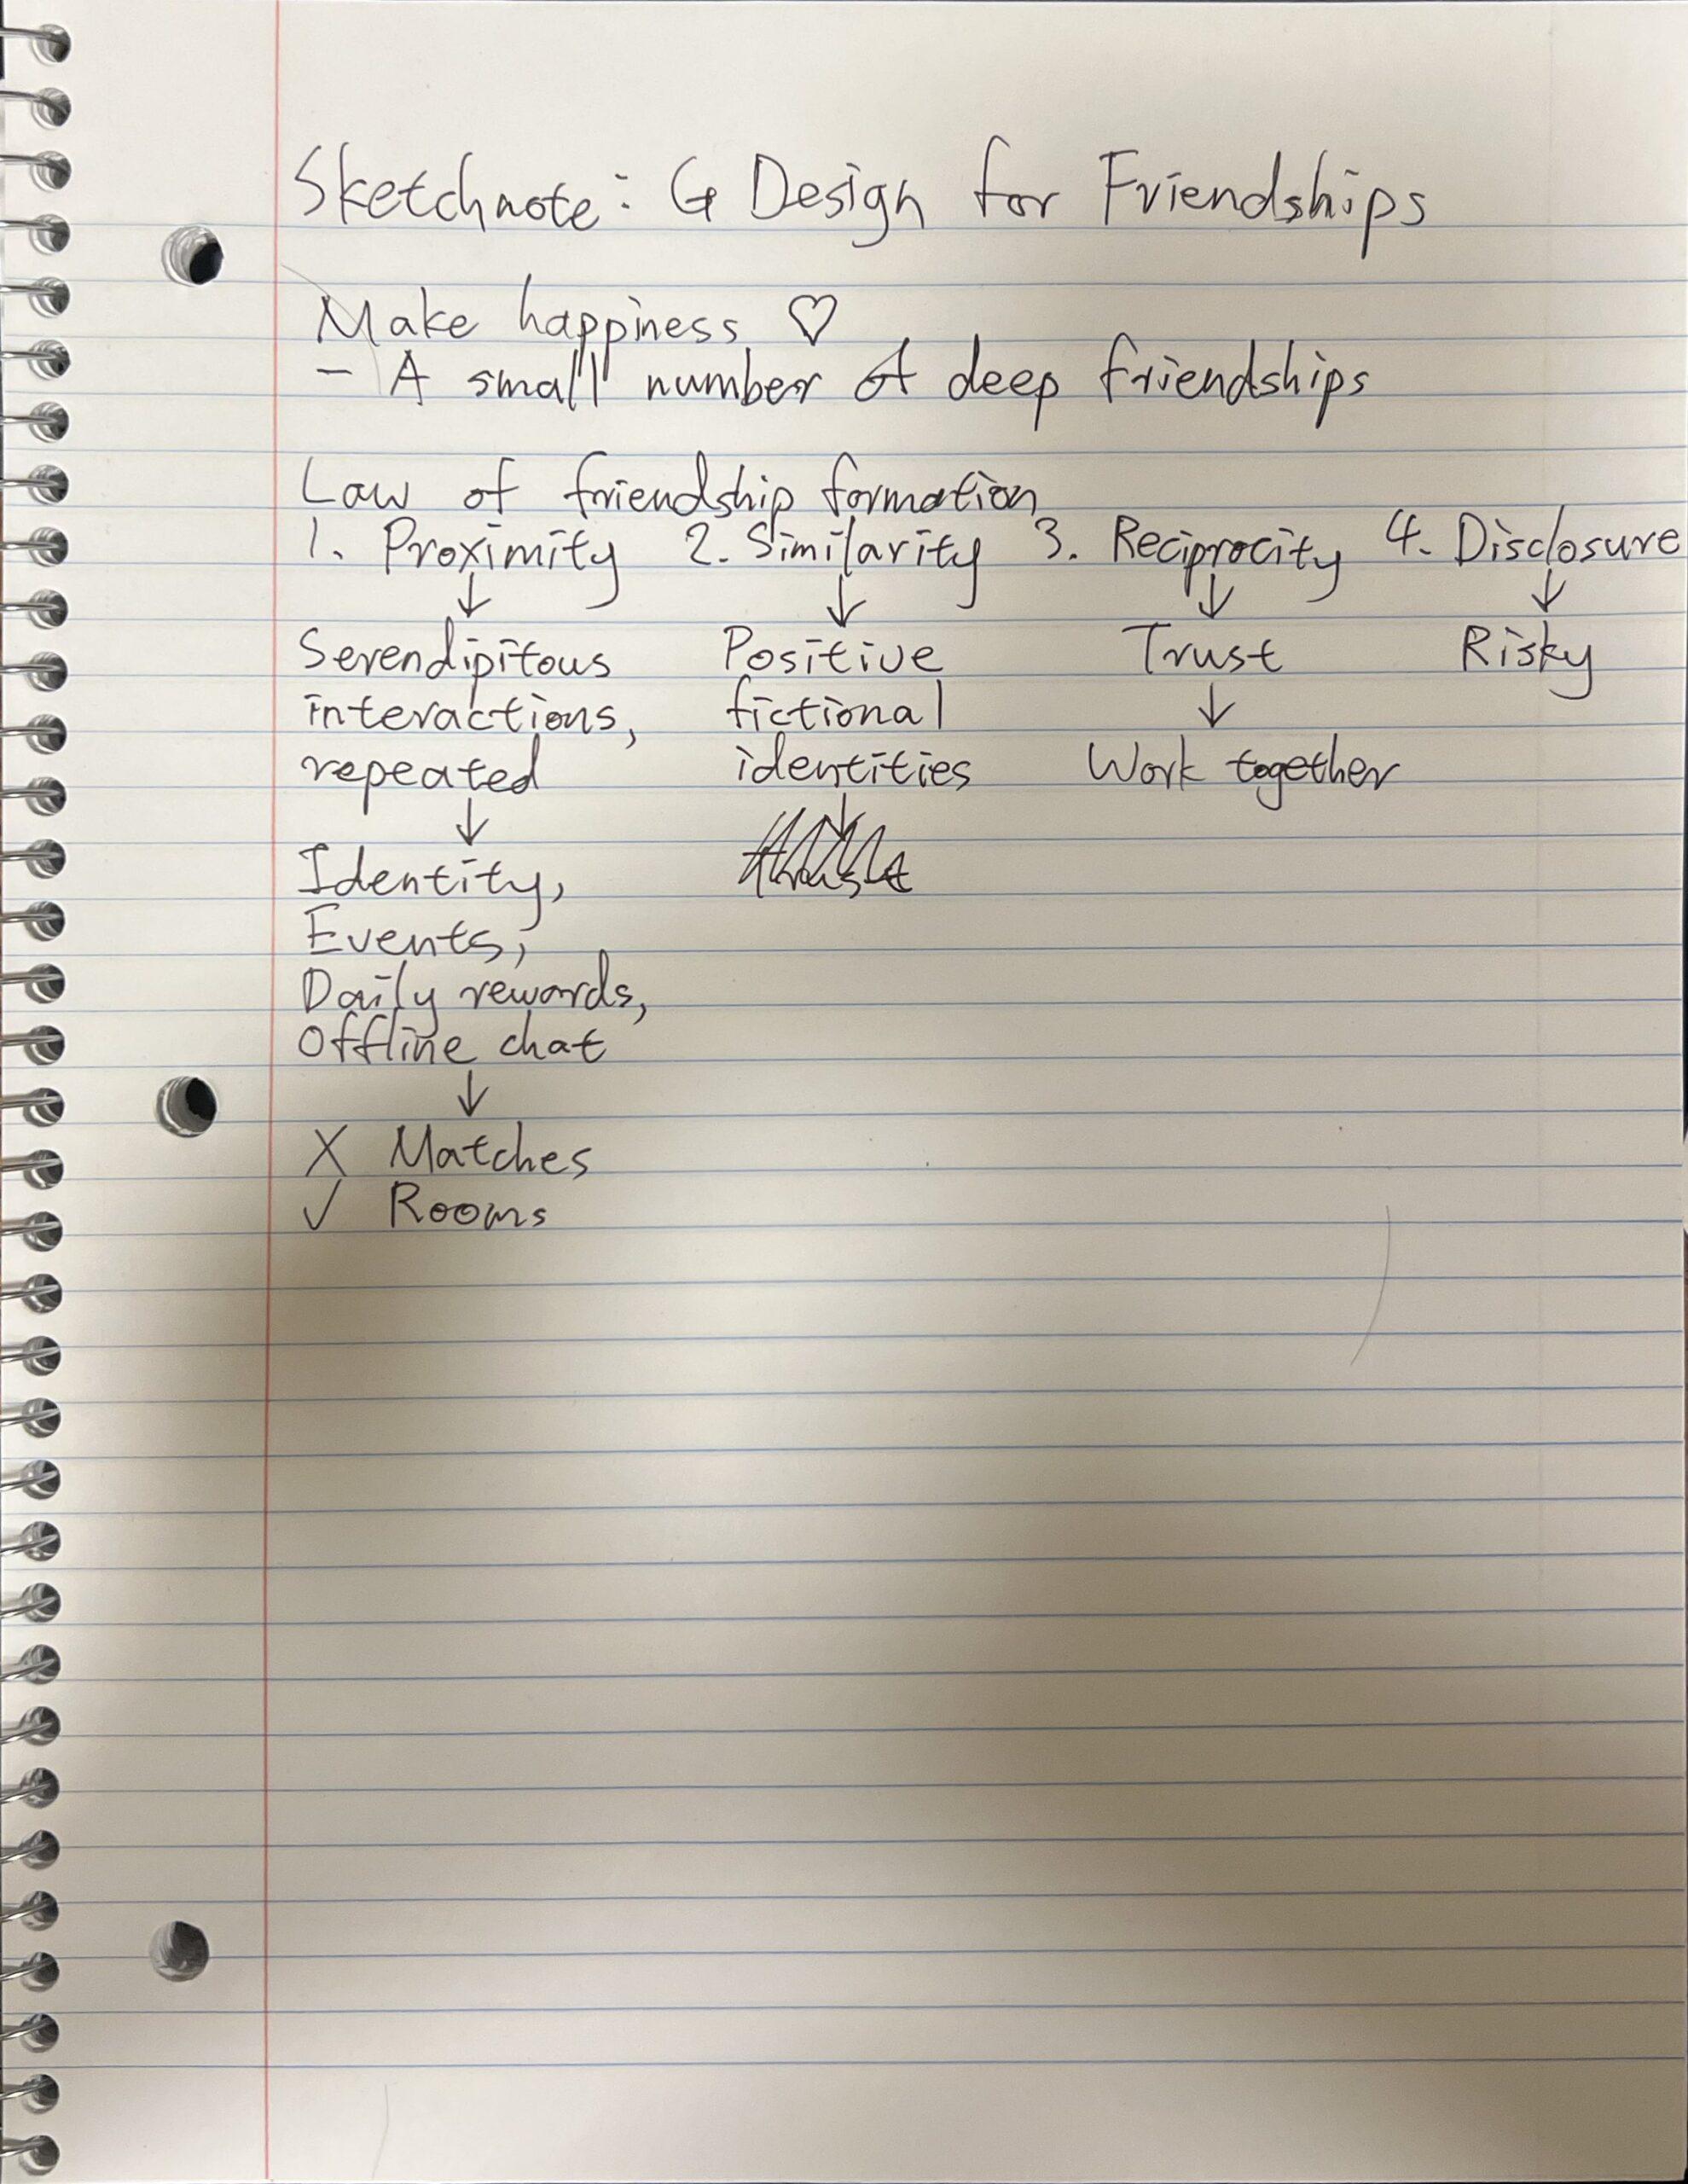 Sketchnote: G Design for Friendships
Make happiness ♡
- A small number of deep friendships
Law of friendship formation
1. Proximity 2. Similarity 3. Reciprocity 4. Disclosure
↓ ↓ ↓ ↓
Serendipitous Positive Trust Risky
interactions, fictional ↓
repeated identities Work together
↓ ↓
Identity,
Events,
Daily rewards,
Offline chat
↓
X Matches
✓ Rooms